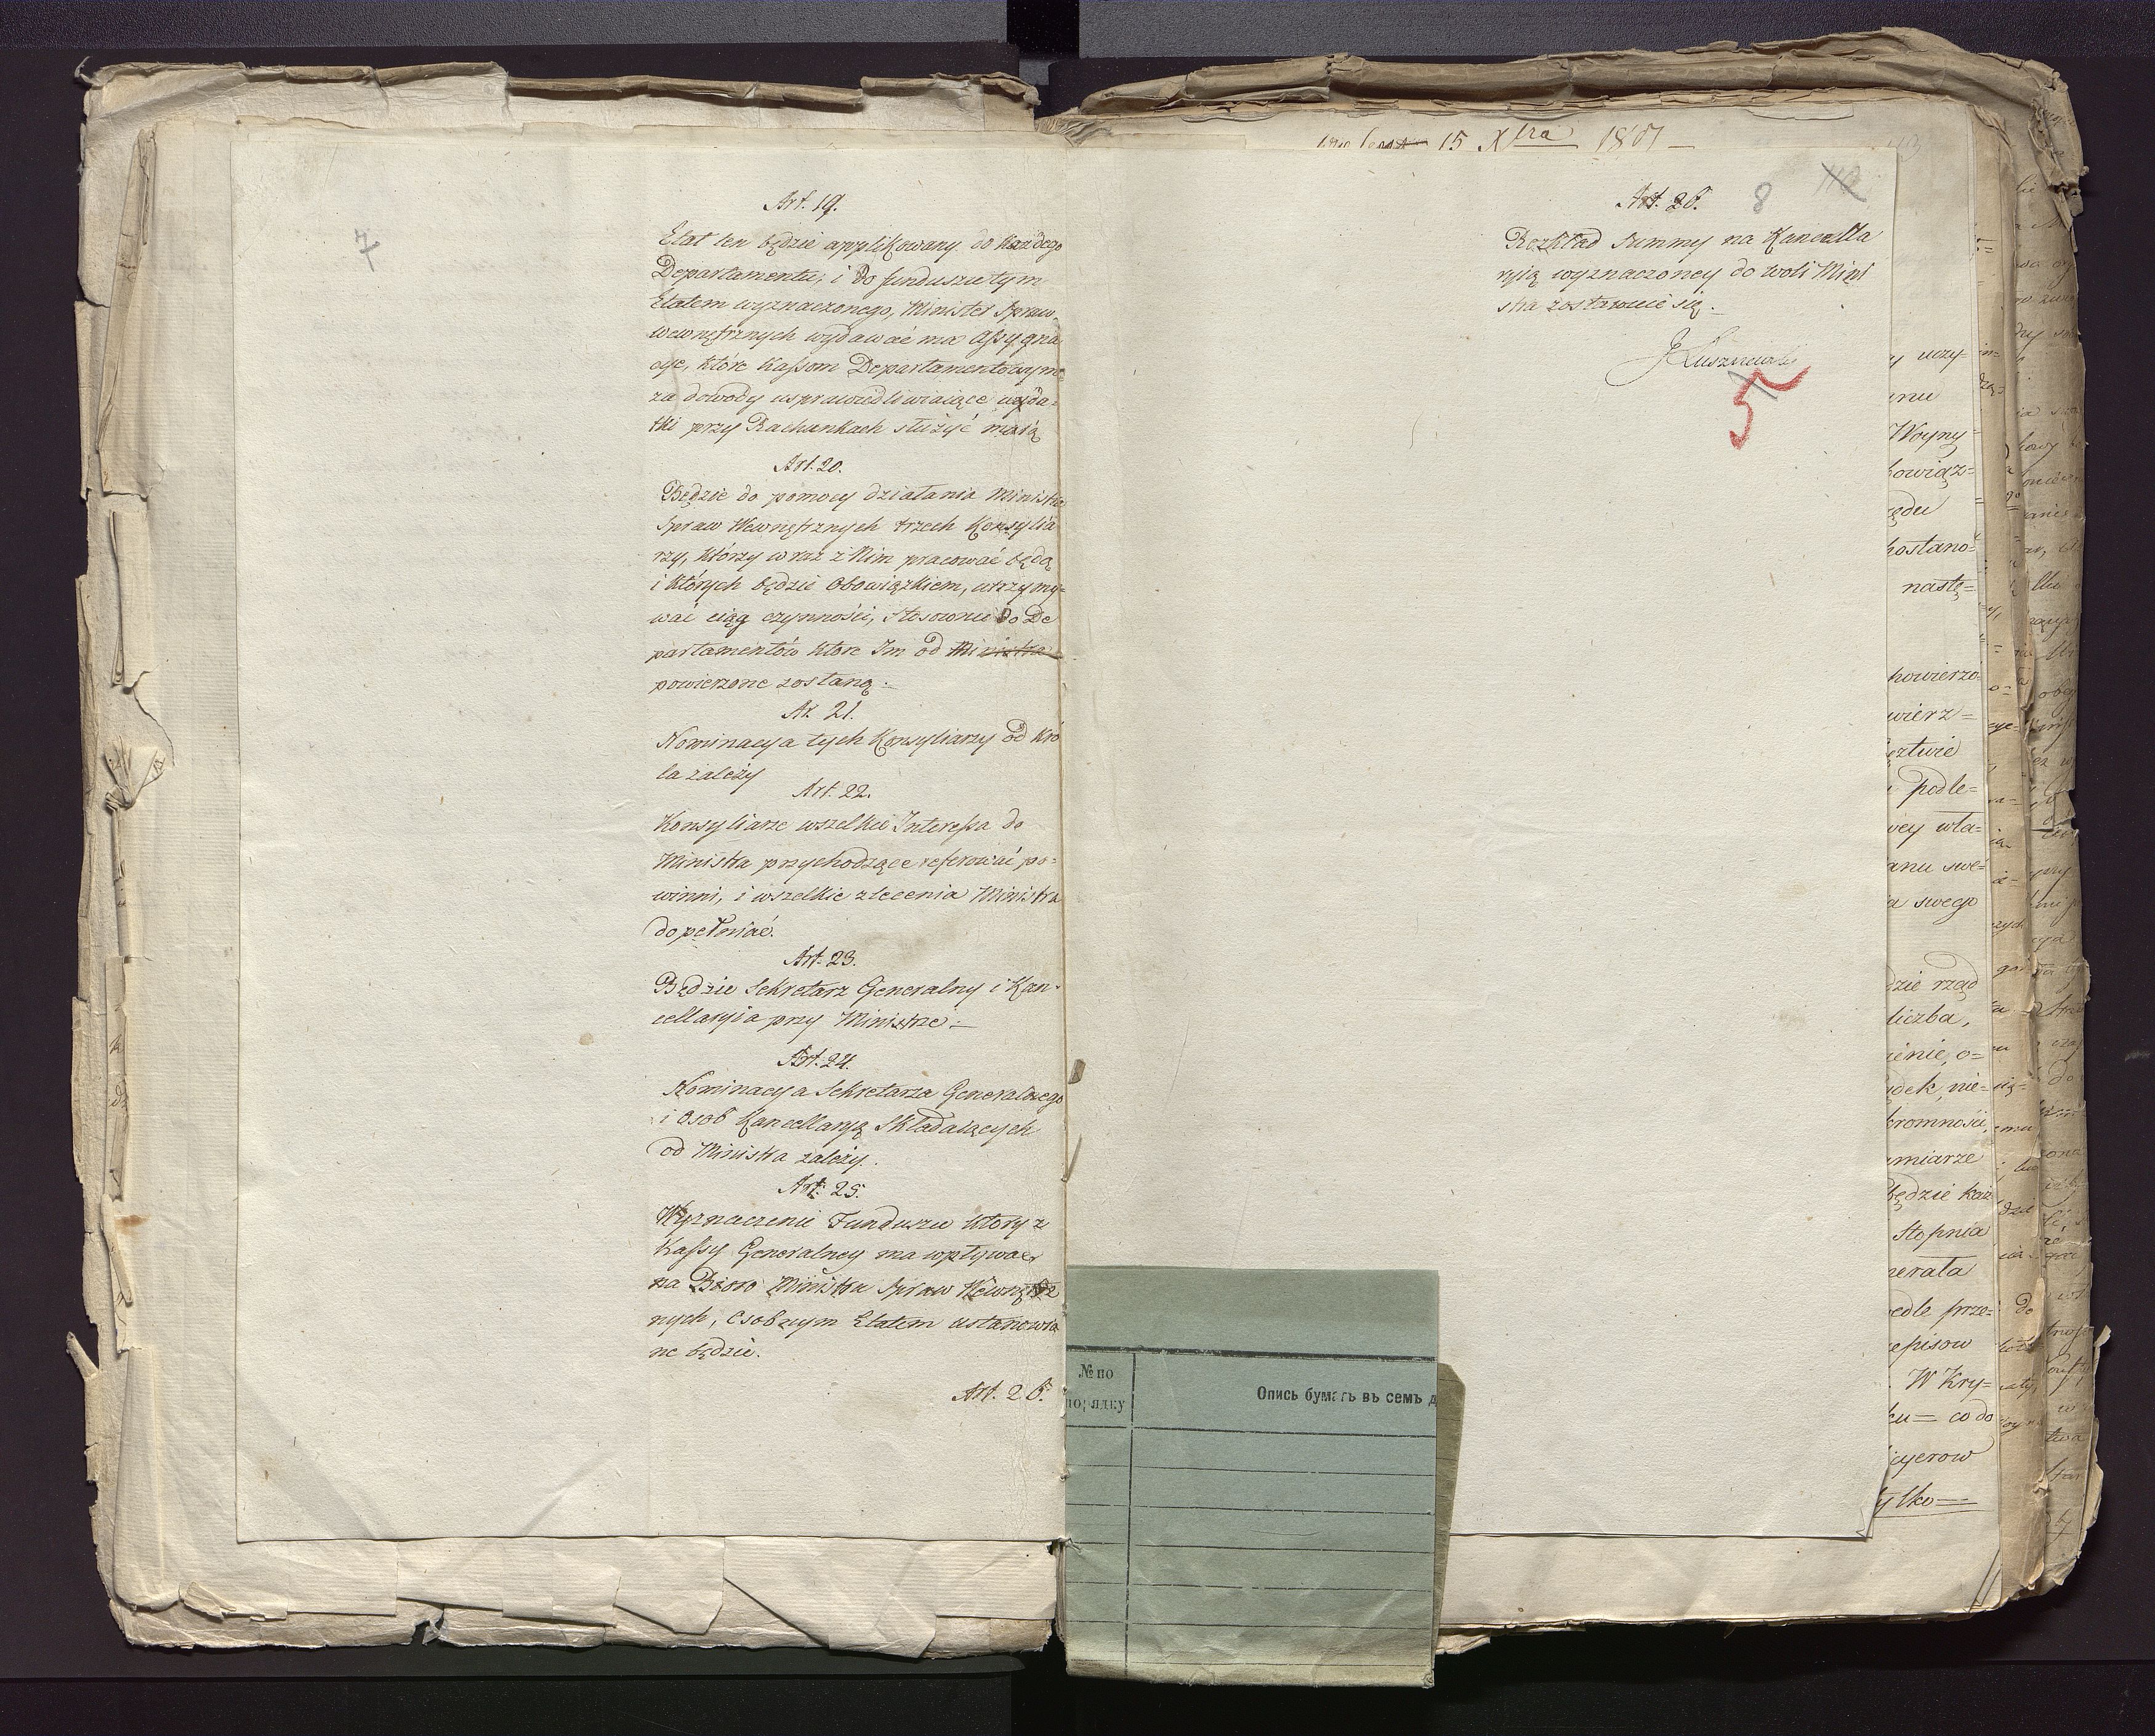 7
Art. 19.
Etat ten będzie applikowany do każdego
Departamentu, i Do funduszu tym
Etatem wyznaczonego, Minister Spraw
wewnętrznych wydawać ma Assygna
cye, które Kassom Departamentowym
za dowody usprawiedliwiaiące wyda=
tki przy Rachunkach służyć maią
Art. 20.
Będzie do pomocy działania Ministra
Spraw Wewnętrznych trzech Konsylia
rzy, którzy wraz z Nim pracować będą
i których będzie Obowiązkiem, utrzymy=
wać ciąg czynności, Stosownie Do De
partamentów które Im od Ministra
powierzone zostaną.
Ar. 21.
Nominacya tych Konsyliarzy od Kró
la zależy
Art. 22.
Konsyliarze wszelkie Interessa do
Ministra przychodzące referować po=
winni, i wszelkie zlecenia Ministra
dopełniać.
Art. 23.
Będzie Sekretarz Generalny i Kan-
cellaryia przy Ministrze.
Art. 24.
Nominacya Sekretarza Generalnego
i Osob Kancellaryą Składaiących
od Ministra zależy.
Art. 25.
Wyznaczenie Funduszu który z
Kassy Generalney ma wpływać
na Bióro Ministra Spraw Wewnętrz
nych, Osobnym Etatem ustanowio
ne będzie.
Art. 26.
15 Xbra 1807
8
Art. 26.
Rozkład Summy na Kancella
ryią wyznaczoney do woli Mini
stra zostawuie się.
JŁuszczewski
5
uczy=
anu
Woyny
nastę=
wierz=
podle=
wey wła=
swego
rząd
liczba,
o=
nie=
miarze
będzie każ
Stopnia
W Kry=
co do
№ по
порядку
Опись бумагъ въ семъ д